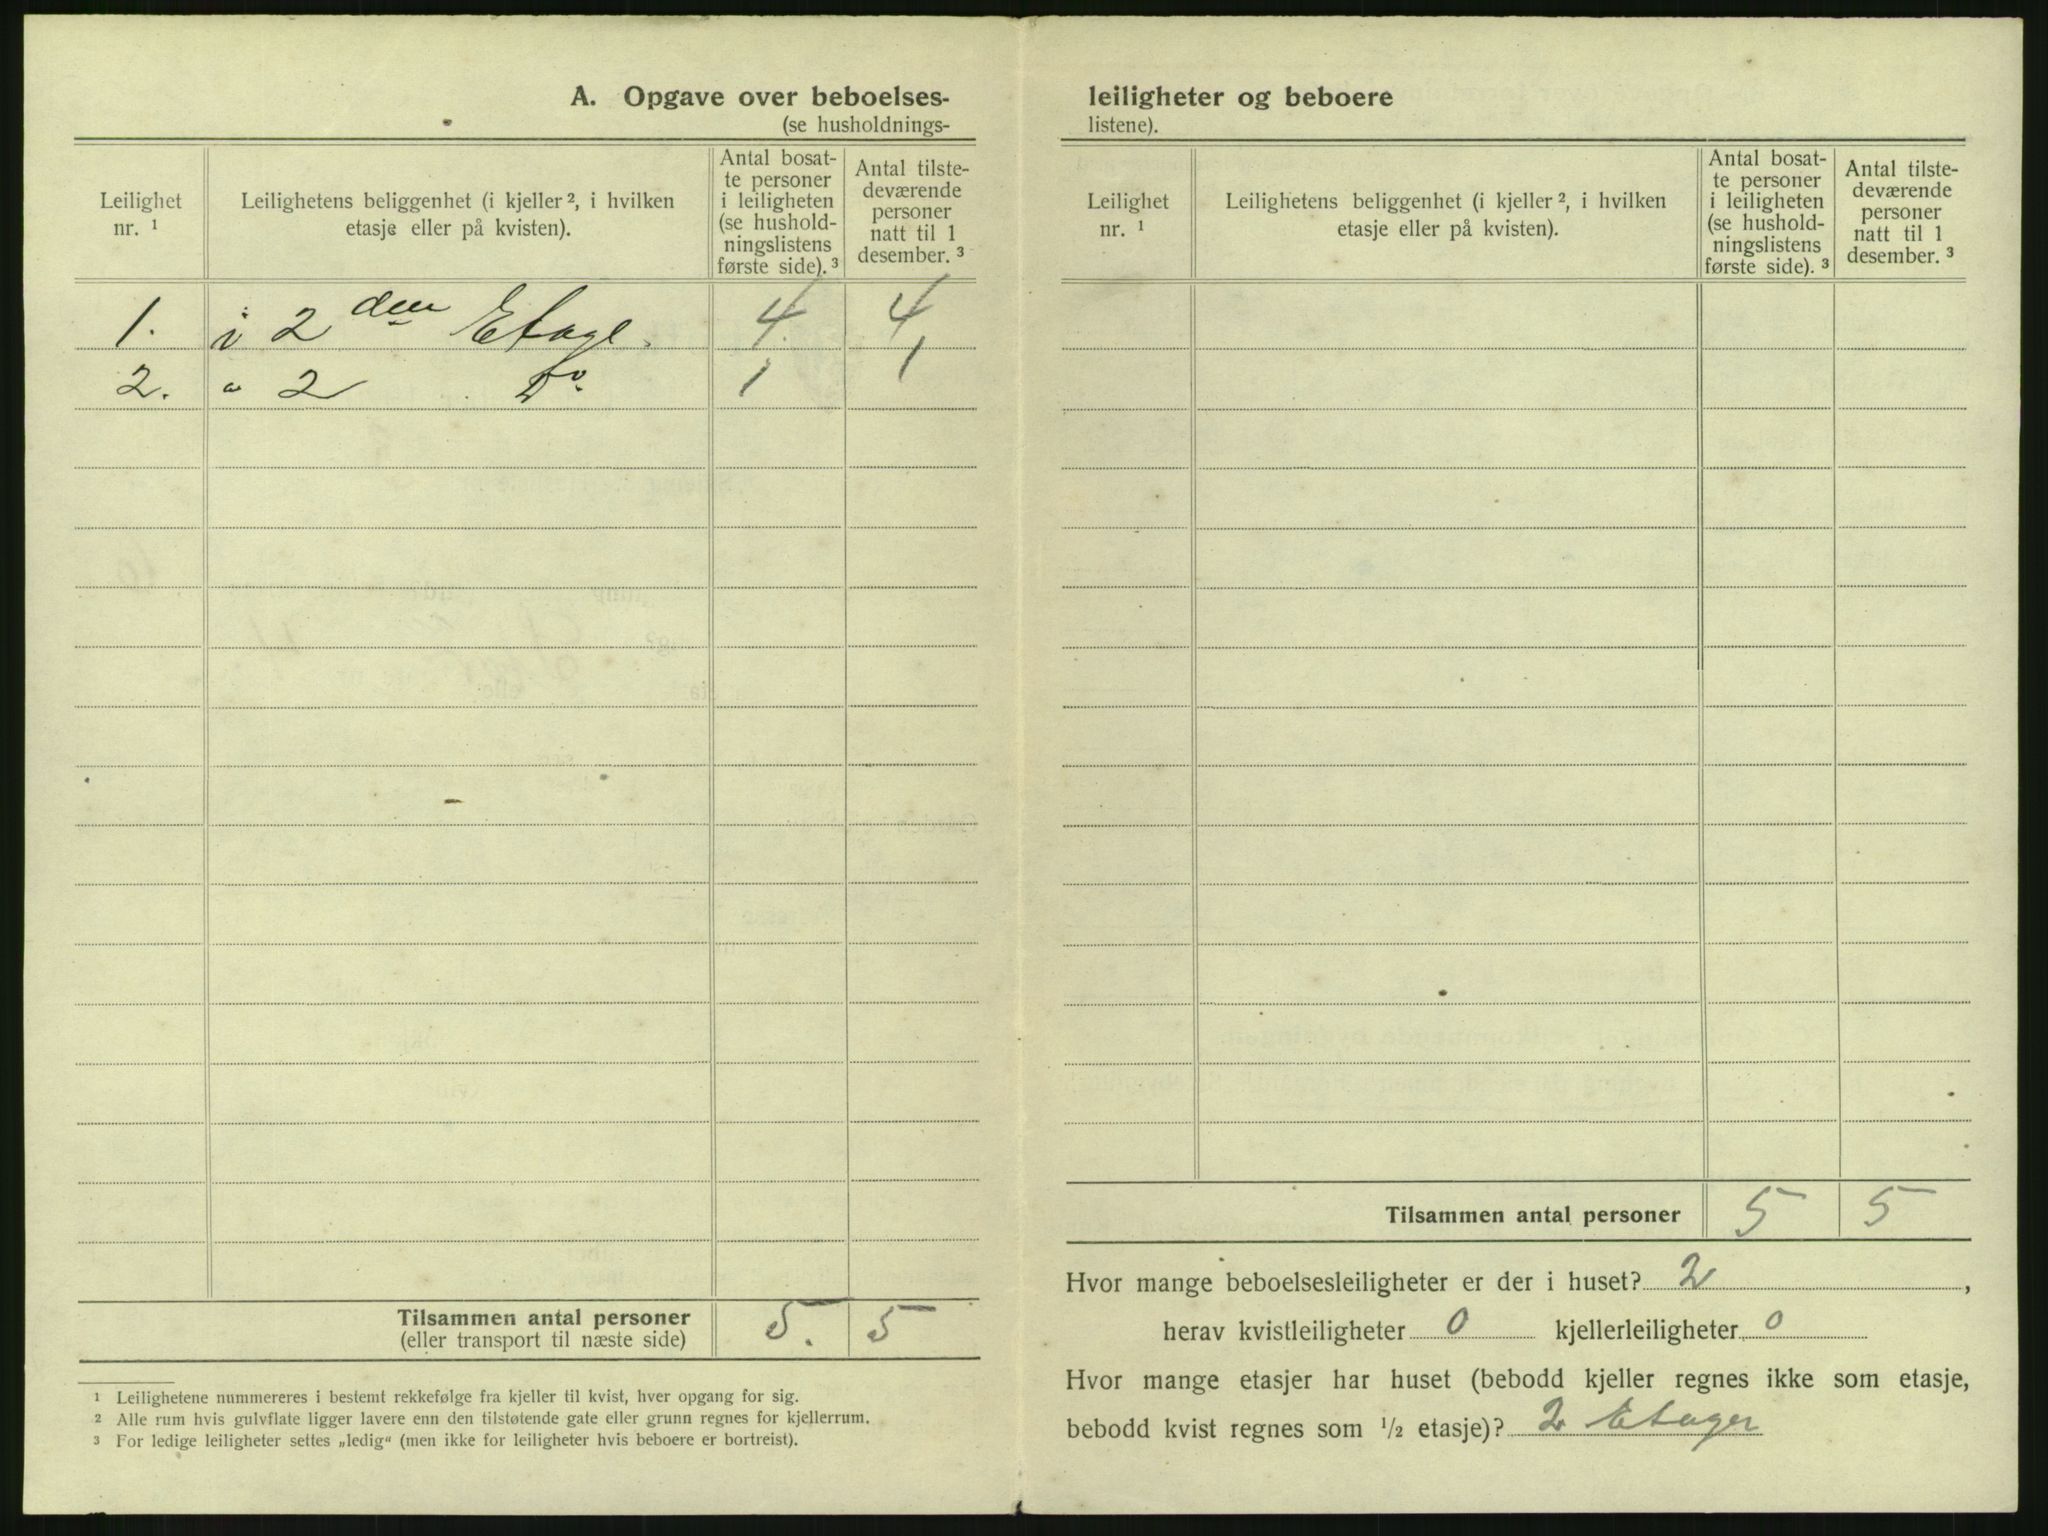 A. Opgave over beboelses-
(se husholdnings-
Leilighet
nr. ¹
Leilighetens beliggenhet (i kjeller ², i hvilken
etasje eller på kvisten).
Antal bosat-
te personer
i leiligheten
(se hushold-
ningslistens
første side). ³
Antal tilste-
deværende
personer
natt til 1
desember. ³
1. i 2 den Etage. 4. 4
2. " 2 Do. 1 1
Tilsammen antal personer 5. 5
(eller transport til næste side)
¹ Leilighetene nummereres i bestemt rekkefølge fra kjeller til kvist, hver opgang for sig.
² Alle rum hvis gulvflate ligger lavere enn den tilstøtende gate eller grunn regnes for kjellerrum.
³ For ledige leiligheter settes „ledig“ (men ikke for leiligheter hvis beboere er bortreist).
leiligheter og beboere
listene).
Leilighet
nr. ¹
Leilighetens beliggenhet (i kjeller ², i hvilken
etasje eller på kvisten).
Antal bosat-
te personer
i leiligheten
(se hushold-
ningslistens
første side). ³
Antal tilste-
deværende
personer
natt til 1
desember. ³
Tilsammen antal personer 5 5
Hvor mange beboelsesleiligheter er der i huset? 2,
herav kvistleiligheter 0 kjellerleiligheter 0
Hvor mange etasjer har huset (bebodd kjeller regnes ikke som etasje,
bebodd kvist regnes som ½ etasje)? 2 Etager